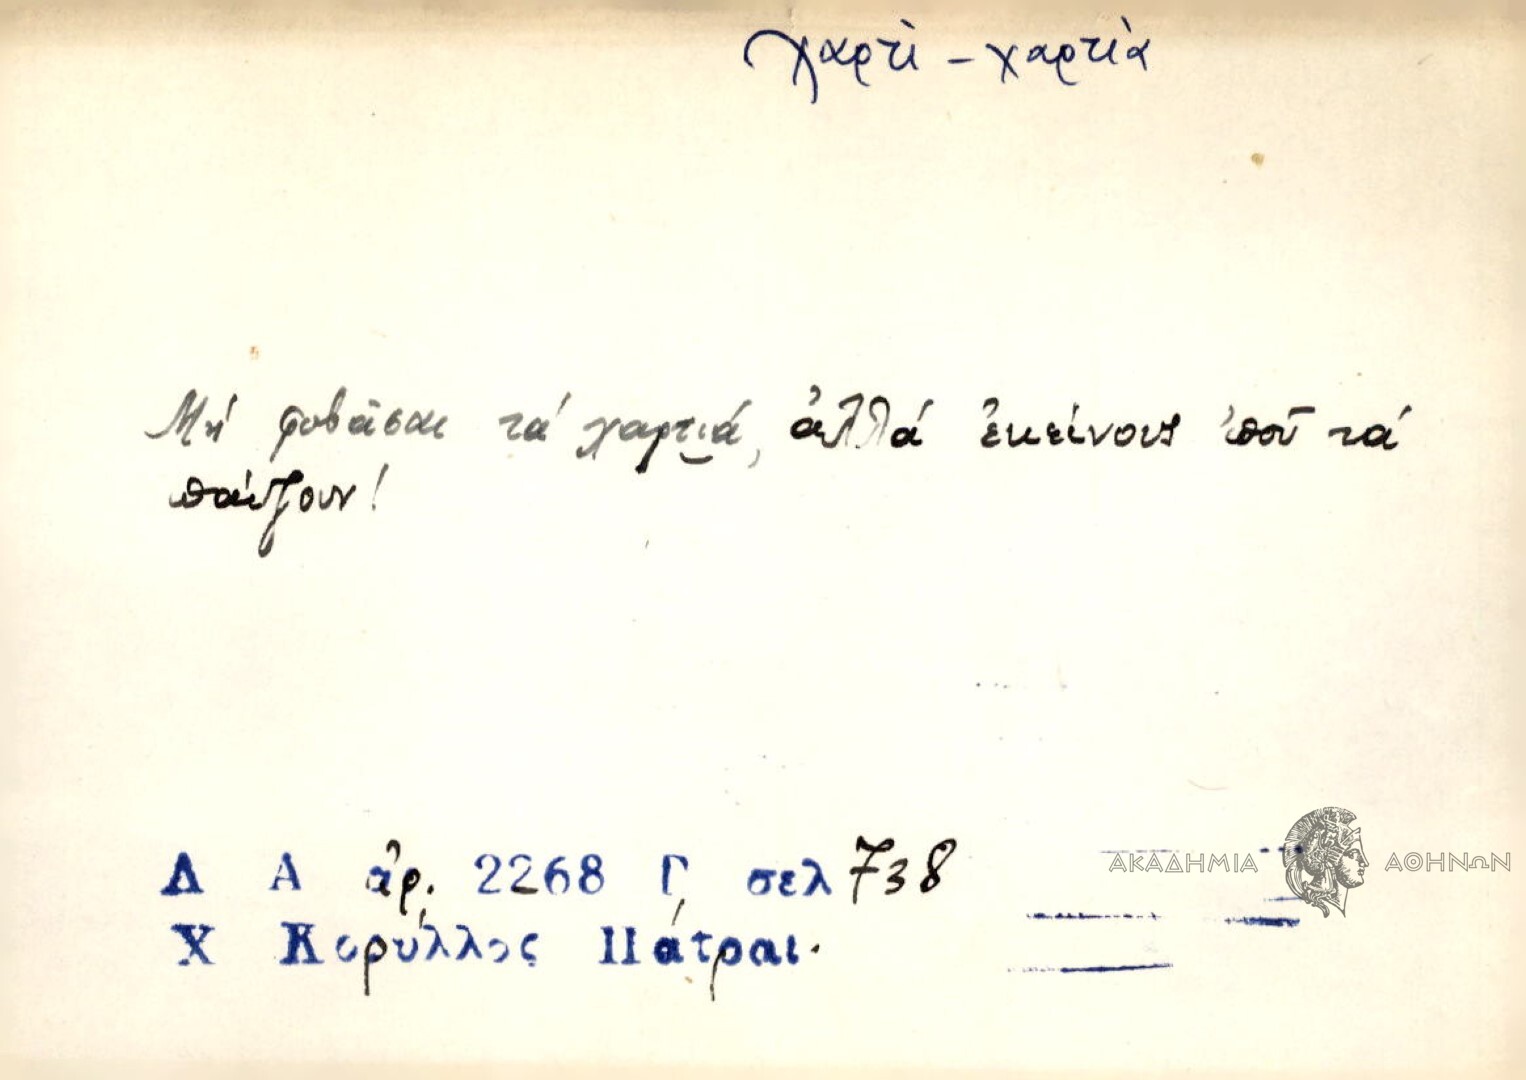 χαρτὶ - χαρτιὰ
Μή φοβᾶσαι τά χαρτιά, ἀλλά ἐκείνους ὁποῦ τά
παίζουν!
Λ Α ἀρ. 2268 Γ, σελ 738
ΑΚΑΔΗΜΙΑ ΑΘΗΝΩΝ
Χ Κορύλλος Πάτραι.